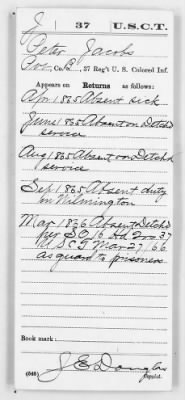 J | 37 | U.S.C.T.
Peter Jacobs
Pvt., Co. E, 37 Reg't U. S. Colored Inf.
Appears on Returns as follows:
Apr 1865 Absent sick
June 1865 Absent on Detchd
service
Aug 1865 Absent on Detchd
service
Sep 1865 Absent duty
in Wilmington
Mar 1866 Absent Detchd
per S.O. 16 Hd Qrs 37
U.S.C.T. Mar 27/66
as guard to prisoners
Book mark:
J E Douglas
(546) Copyist.